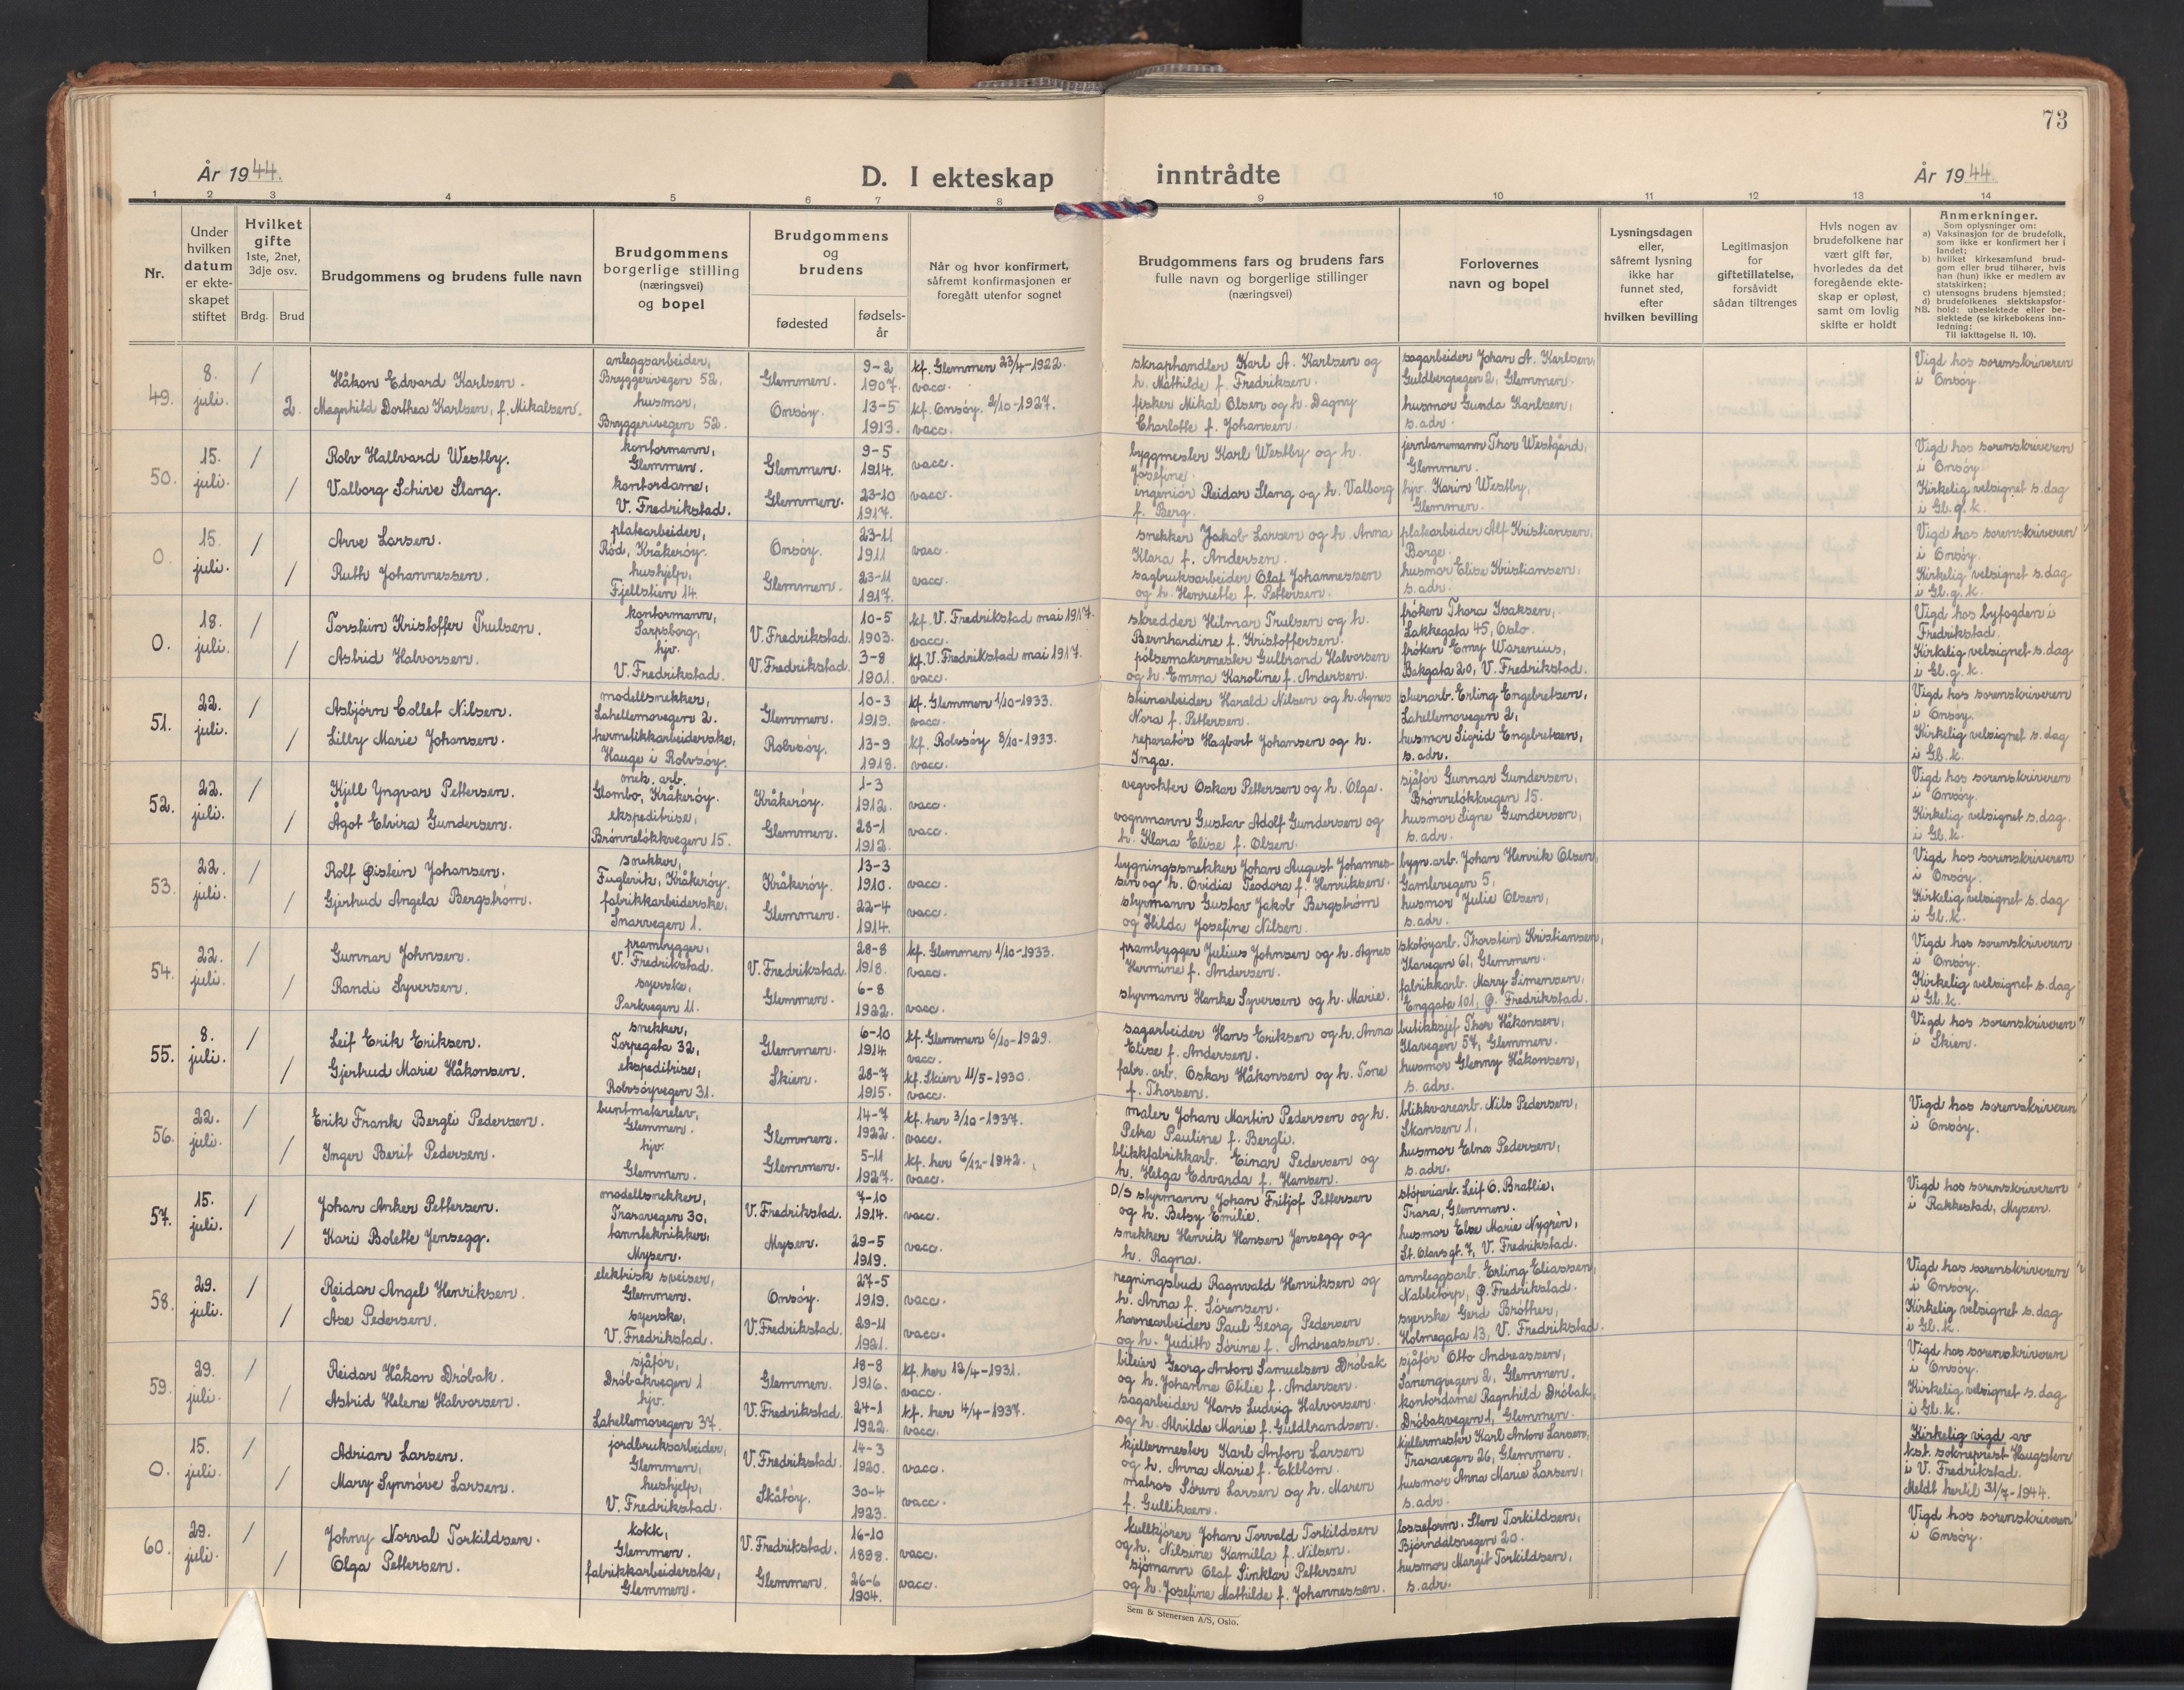 73
År 1944.
D. I ekteskap inntrådte
År 1944.
1 2 3 4 5 6 7 8 9 10 11 12 13 14
Nr.
Under hvilken datum er ekteskapet stiftet
Hvilket gifte 1ste, 2net, 3dje osv.
Brdg. Brud
Brudgommens og brudens fulle navn
Brudgommens borgerlige stilling (næringsvei) og bopel
Brudgommens og brudens
fødested
fødselsår
Når og hvor konfirmert, såfremt konfirmasjonen er foregått utenfor sognet
Brudgommens fars og brudens fars fulle navn og borgerlige stillinger (næringsvei)
Forlovernes navn og bopel
Lysningsdagen eller, såfremt lysning ikke har funnet sted, efter hvilken bevilling
Legitimasjon for giftetillatelse, forsåvidt sådan tiltrenges
Hvis nogen av brudefolkene har vært gift før, hvorledes da det foregående ekteskap er opløst, samt om lovlig skifte er holdt
Anmerkninger.
Som oplysninger om:
a) Vaksinasjon for de brudefolk, som ikke er konfirmert her i landet;
b) hvilket kirkesamfund brudgom eller brud tilhører, hvis han (hun) ikke er medlem av statskirken;
c) utensogns brudens hjemsted;
d) brudefolkenes slektskapsforhold: ubeslektede eller beslektede (se kirkebokens innledning:
NB.
Til iakttagelse II. 10).
49. 8. juli. / Håkon Edvard Karlsen. anleggsarbeider, Bryggerivegen 52. Glemmen. 9-2 1907. kf. Glemmen 23/4-1922. vacc. skraphandler Karl A. Karlsen og h. Mathilde f. Fredriksen. sagarbeider Johan A. Karlsen, Guldbergvegen 2, Glemmen. Vigd hos sorenskriveren i Onsøy.
2. Magnhild Dorthea Karlsen, f. Mikalsen. husmor, Bryggerivegen 52. Onsøy. 13-5 1913. kf. Onsøy. 2/10-1927. vacc. fisker Mikal Olsen og h. Dagny Charlotte f. Johansen. husmor Gunda Karlsen, s. adr.
50. 15. juli. / Rolv Hallvard Westby. kontormann, Glemmen. Glemmen. 9-5 1914. vacc. byggmester Karl Westby og h. Josefine. jernbanemann Thor Westgård, Glemmen. Vigd hos sorenskriveren i Onsøy.
/ Valborg Schive Slang. kontordame, V. Fredrikstad. Glemmen. 23-10 1917. vacc. ingeniør Reidar Slang og h. Valborg f. Berg. hjv. Karin Westby, Glemmen. Kirkelig velsignet s. dag i Gl. g. k.
0. 15. juli. / Arve Larsen. platearbeider, Rød, Kråkerøy. Onsøy. 23-11 1911 vacc. snekker Jakob Larsen og h. Anna Klara f. Andersen. platearbeider Alf Kristiansen, Borge. Vigd hos sorenskriveren i Onsøy.
/ Ruth Johannessen. hushjelp, Fjellstien 14. Glemmen. 23-11 1917. vacc. sagbruksarbeider Olaf Johannessen og h. Henriette f. Pettersen. husmor Elise Kristiansen, s. adr. Kirkelig velsignet s. dag i Gl. g. k.
0. 18. juli. / Torstein Kristoffer Trulsen. kontormann, Sarpsborg, V. Fredrikstad. 10-5 1903. kf. V. Fredrikstad mai 1917. vacc. skredder Hilmar Trulsen og h. Bernhardine f. Kristoffersen. frøken Thora Isaksen, Lakkegata 45, Oslo. Vigd hos byfogden i Fredrikstad.
/ Astrid Halvorsen. hjv. V. Fredrikstad. V. Fredrikstad. 3-8 1901. kf. V. Fredrikstad mai 1917. vacc. pølsemakermester Gulbrand Halvorsen og h. Emma Karoline f. Andersen. frøken Emy Warenius, Bakgata 20, V. Fredrikstad. Kirkelig velsignet s. dag i Gl. g. k.
51. 22. juli. / Asbjørn Collet Nilsen. modellsnekker, Lahellemovegen 2. Glemmen. 10-3 1919. kf. Glemmen 1/10-1933. vacc. steinarbeider Harald Nilsen og h. Agnes Nora f. Pettersen. stuerarb. Erling Engebretsen, Lahellemovegen 2, Vigd hos sorenskriveren i Onsøy.
/ Lilly Marie Johansen. hermetikkarbeiderske, Hauge i Rolvsøy. Rolvsøy. 13-9 1918. kf. Rolvsøy 8/10-1933. vacc. reparatør Hagbart Johansen og h. Inga. husmor Sigrid Engebretsen, s. adr. Kirkelig velsignet s. dag i Gl. k.
52. 22. juli. / Kjell Yngvar Pettersen. mek. arb. Glombo, Kråkerøy. Kråkerøy. 1-3 1912. vacc. vegvokter Oskar Pettersen og h. Olga. sjåfør Gunnar Gundersen, Brønneløkkvegen 15. Vigd hos sorenskriveren i Onsøy.
/ Ågot Elvira Gundersen. ekspeditrise, Brønneløkkvegen 15. Glemmen. 28-1 1912. vacc. vognmann Gustav Adolf Gundersen og h. Klara Elise f. Olsen. husmor Signe Gundersen, s. adr. Kirkelig velsignet s. dag. i Gl. k.
53. 22. juli. / Rolf Øistein Johansen. snekker, Fuglevik, Kråkerøy. Kråkerøy. 13-3 1910. vacc. bygningssnekker Johan August Johannessen og h. Ovidia Teodora f. Henriksen. bygn. arb. Johan Henrik Olsen, Gamlevegen 5, Vigd hos sorenskriveren i Onsøy.
/ Gjertrud Angela Bergstrøm. fabrikkarbeiderske, Smarvegen 1. Glemmen. 22-4 1914. vacc. styrmann Gustav Jakob Bergstrøm og Hilda Josefine Nilsen. husmor Julie Olsen, s. adr. Kirkelig velsignet s. dag i Gl. k.
54. 22. juli. / Gunnar Johnsen. prambygger, V. Fredrikstad. V. Fredrikstad. 28-8 1918. kf. Glemmen 1/10-1933. vacc. prambygger Julius Johnsen og h. Agnes Hermine f. Andersen. skotøyarb. Thorstein Kristiansen, Ilavegen 61, Glemmen. Vigd hos sorenskriveren i Onsøy.
/ Randi Syversen. syerske, Parkvegen 11. Glemmen. 6-8 1922. vacc. styrmann Hanke Syversen og h. Marie. fabrikkarb. Mary Simensen, Enggata 101, Ø. Fredrikstad. Kirkelig velsignet s. dag i Gl. k.
55. 8. juli. / Leif Erik Eriksen. snekker, Torpegata 32, Glemmen. 6-10 1914 kf. Glemmen 6/10-1929. vacc. sagarbeider Hans Eriksen og h. Anna Elise f. Andersen. butikksjef Thor Håkonsen, Ilavegen 57, Glemmen. Vigd hos sorenskriveren i Skien.
/ Gjertrud Marie Håkonsen. ekspeditrise, Rolvsøyvegen 31. Skien. 28-7 1915. kf. Skien 11/5-1930. vacc. fabr. arb. Oskar Håkonsen og h. Tone f. Thorsen. husmor Glenny Håkonsen, s. adr.
56. 22. juli. / Erik Frank Bergli Pedersen. buntmakerelev, Glemmen. Glemmen. 14-7 1922. kf. her 3/10-1937. vacc. maler Johan Martin Pedersen og h. Petra Pauline f. Bergli. blikkvarearb. Nils Pedersen, Skansen 1, Vigd hos sorenskriveren i Onsøy.
/ Inger Berit Pedersen. hjv. Glemmen. Glemmen. 5-11 1927. kf. her 6/12-1942. vacc. blikkfabrikkarb. Einar Pedersen og h. Helga Edvarda f. Hansen. husmor Elna Pedersen, s. adr.
57. 15. juli. / Johan Anker Pettersen. modellsnekker, Traravegen 30, V. Fredrikstad. 7-10 1914. vacc. D/S styrmann Johan Fritjof Pettersen og h. Betsy Emilie. støperiarb. Leif O. Brattlie, Trara, Glemmen. Vigd hos sorenskriveren i Rakkestad, Mysen.
/ Kari Bolette Jensegg. tanntekniker, Mysen. Mysen. 29-5 1919. vacc. snekker Henrik Hansen Jensegg og h. Ragna. husmor Else Marie Nygrèn, St. Olavs gt. 7, V. Fredrikstad.
58. 29. juli. / Reidar Angel Henriksen. elektrisk sveiser, Glemmen. Onsøy. 27-5 1919. vacc. regningsbud Ragnvald Henriksen og h. Anna f. Sørensen. annleggsarb. Erling Eliassen, Nabbetorp, Ø. Fredrikstad. Vigd hos sorenskriveren i Onsøy.
/ Åse Pedersen. syerske, V. Fredrikstad. V. Fredrikstad. 29-11 1921. vacc. havnearbeider Paul Georg Pedersen og h. Judith Sørine f. Andreassen. syerske Gerd Brøther, Holmegata 13, V. Fredrikstad. Kirkelig velsignet s. dag i Gl. k.
59. 29. juli. / Reidar Håkon Drøbak. sjåfør, Drøbakvegen 1 Glemmen. 18-8 1916. kf. her 12/4-1931. vacc. bileier Georg Anton Samuelsen Drøbak og h. Johanne Otilie f. Andersen. sjåfør Otto Andreassen, Sanengvegen 2, Glemmen. Vigd hos sorenskriveren i Onsøy.
/ Astrid Helene Halvorsen. hjv. Lahellemovegen 37. V. Fredrikstad. 24-1 1922. kf. her 4/4-1937. vacc. sagarbeider Hans Ludvig Halvorsen. og h. Alvilde Marie f. Guldbrandsen. kontordame Ragnhild Drøbak, Drøbakvegen 1, Glemmen. Kirkelig velsignet s. dag i Gl. k.
0. 15. juli. / Adrian Larsen. jordbruksarbeider, Glemmen, V. Fredrikstad. 14-3 1920. vacc. kjellermester Karl Anton Larsen og h. Anna Marie f. Ekblom. kjellermester Karl Anton Larsen, Traravegen 26, Glemmen. Kirkelig vigd av kst. sokneprest Haugsten i V. Fredrikstad.
/ Mary Synnøve Larsen. hushjelp, V. Fredrikstad. Skåtøy. 30-4 1923. vacc. matros Søren Larsen og h. Maren f. Gulliksen. husmor Anna Marie Larsen, s. adr. Meldt hertil 31/7-1944.
60. 29. juli. / Johny Norval Torkildsen. kokk, Glemmen. V. Fredrikstad. 16-10 1898. vacc. kullkjører Johan Torvald Torkildsen og h. Nilsine Kamilla f. Nilsen. losseform. Sten Torkildsen, Bjørndalsvegen 20. Vigd hos sorenskriveren i Onsøy.
/ Olga Pettersen. fabrikkarbeiderske, Glemmen. Glemmen. 26-6 1904. vacc. sjømann Olaf Sinklar Pettersen og h. Josefine Mathilde f. Johannessen. husmor Margit Torkildsen, s. adr.
Sem & Stenersen A/S, Oslo.